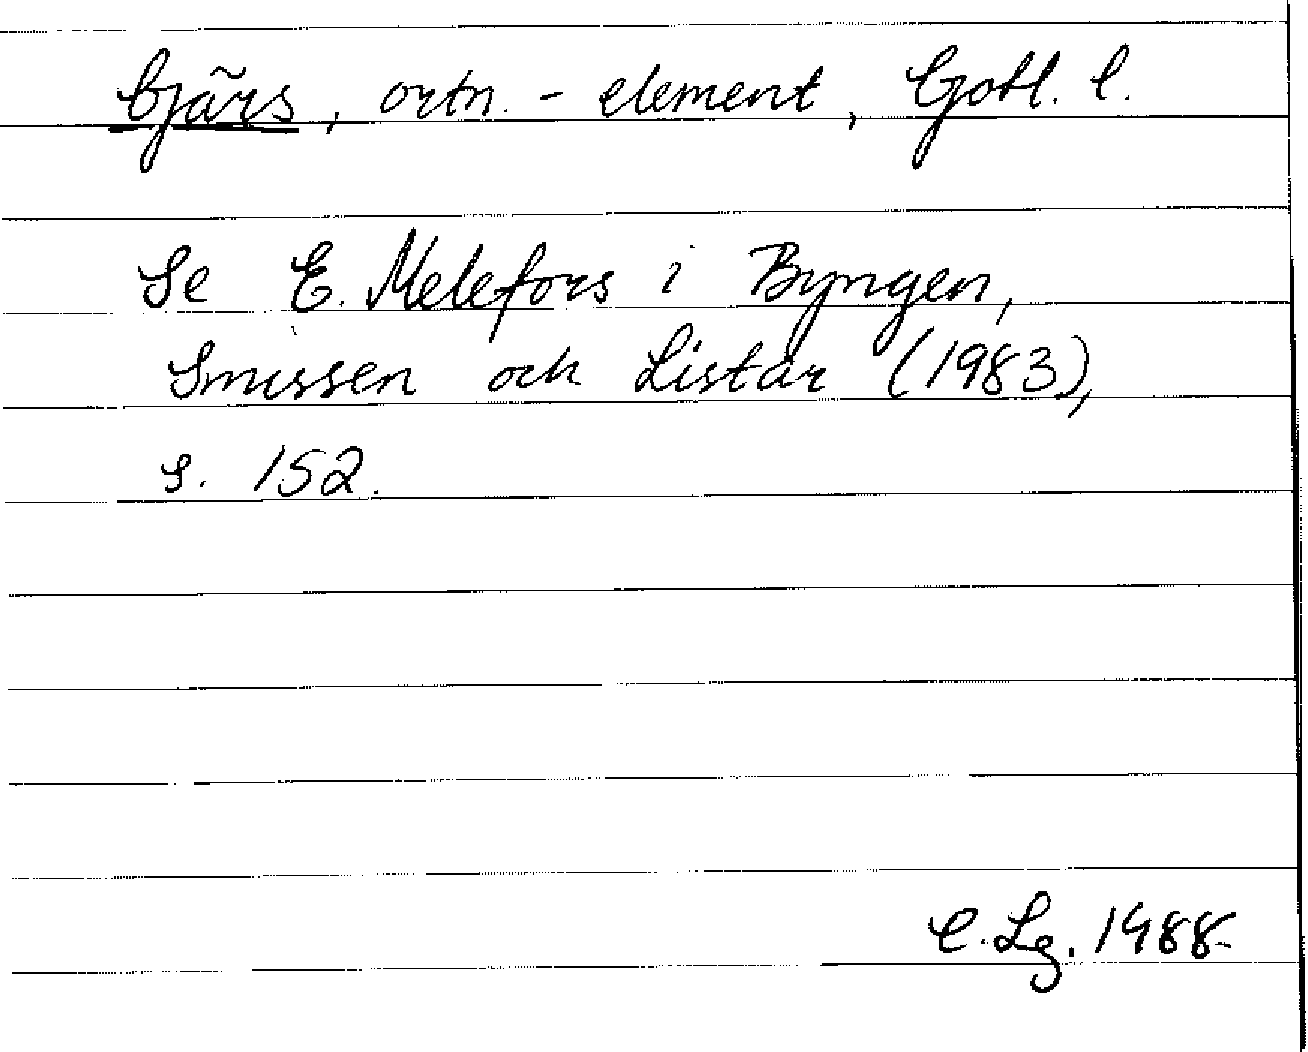 bjärs, ortn.-element, Gotl. l.
Se E. Melefors i Byngen,
Smissen och Listar (1983),
s. 152.
C. Lg. 1988